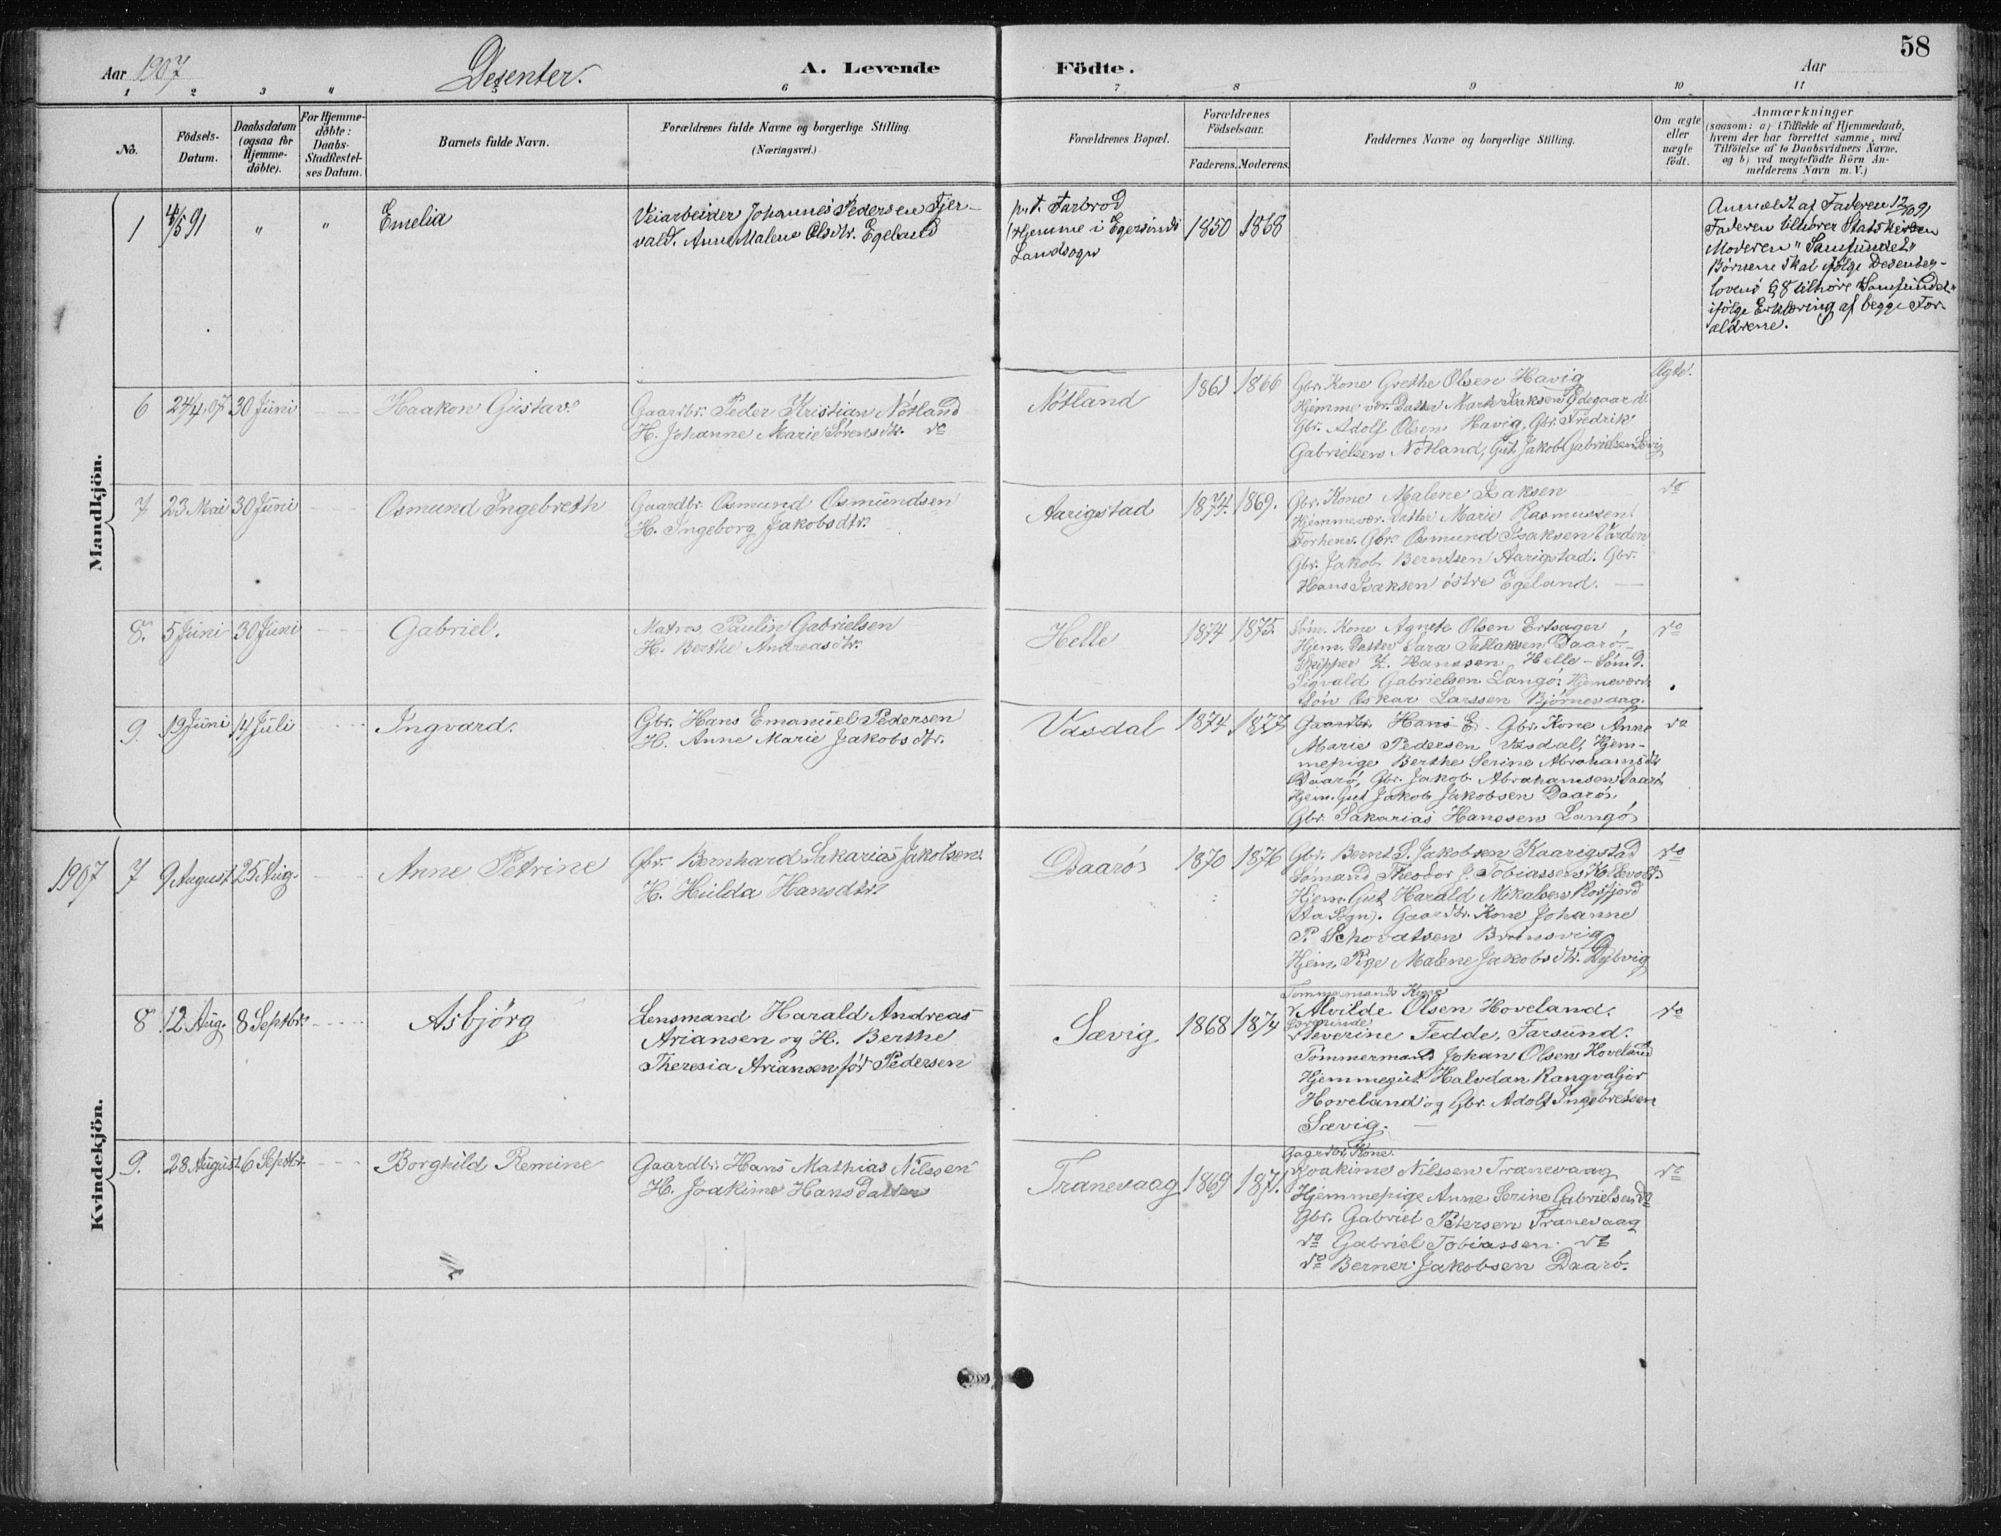 58
Aar 1907 Desenter. A. Levende Födte. Aar
1 2 3 " 6 7 8 9 10 11
No.
Födsels-
Datum.
Daabsdatum
(ogsaa for
Hjemme-
døbte).
For Hjemme-
døbte:
Daabs-
Stadfæstel-
ses Datum.
Barnets fulde Navn.
Forældrenes fulde Navne og borgerlige Stilling.
(Næringsvei.)
Forældrenes Bopæl.
Forældrenes
Födselsaar.
Faderens. Moderens.
Faddernes Navne og borgerlige Stilling.
Om ægte
eller
uægte
födt.
Anmærkninger
(saasom: a) i Tilfælde af Hjemmedaab,
hvem der har forrettet samme, med
Tilföielse af to Daabsvidners Navne.
og b) ved uægtefödte Börn An-
melderens Navn m. V.)
Mandkjön.
1 4/5 91 " " Emelia
Veiarbeider Johannes Pedersen Tjer-
vald. Anne Malene Olsdtr. Egeland
p.t. Farbrod
(Hjemme i Egersunds
Landsogn
1850 1868
Anmeldt af Faderen 12/10 91
Faderen tilhører Statskirken
Moderen "Samfundet"
Børnene skal ifølge Desenter-
lovens § 8 tilhøre "Samfundet"
ifølge Erklæring af begge For-
ældrene.
6 24/4.07 30 Juni Haakon Gustav.
Gaardbr. Peder Kristian Nötland
H. Johanne Marie Sørensdtr. do
Nötland 1861 1866
Gbr. Kone Grethe Olsen Havig
Hjemme vær. Datter Marte Isaksen Ødegaard
Gbr. Adolf Olsen Havig, Gbr. Fredrik
Gabrielsen Nötland, Gut Jakob Gabrielsen Sævig
Ægte.
7 23 Mai 30 Juni Osmund Ingebreth
Gaardbr. Osmund Osmundsen
H. Ingeborg Jakobsdtr.
Aarigstad 1874. 1869.
Gbr. Kone Malene Isaksen
Hjemmevær. Datter Marie Rasmussen
Forhenv. Gbr. Osmund Isaksen Varden
Gbr. Jakob Berntsen Aarigstad. Gbr.
Hans Isaksen östre Egeland.
do
8. 5 Juni 30 Juni Gabriel.
Matros Paulin Gabrielsen
H. Berthe Andreasdtr.
Helle 1874 1875.
Søm. Kone Agnete Olsen Ertsager,
Hjem. Datter Sara Tallaksen Daarö-
Skipper Z. Hanssen Helle - Sømd.
Sigvald Gabrielsen Langö. Hjemevær.
Søn Oskar Larssen Bjørnevaag.
do
9. 19 Juni 14 Juli Ingvard.
Gbr. Hans Emanuel Pedersen
H. Anne Marie Jakobsdtr.
Vasdal 1874 1877
Gaardbr. Hans E. Gbr. Kone Anne
Marie Pedersen Vasdal, Hjem-
mepige Berthe Serine Abrahamsdtr
Daarö, Gbr. Jakob Abrahamsen Daarö
Hjem. Gut Jakob Jakobsen Daarö,
Gbr. Sakarias Hanssen Langö
do
Kvindekjön.
1907 7 9 August 25 Aug. Anne Petrine
Gbr. Bernhard Sakarias Jakobsen.
H. Hulda Hansdtr.
Daarö 1870 1876
Gbr. Bernt S. Jakobsen Kaarigstad
Sömand Theodor J. Tobiassen
Hjem. Gut Harald Mikalsen Rosfjord
Gaardbr. Kone Johanne
P. Brunsvig
Hjem. Pige Malene Jakobsdtr. Dybvig
do
8 12 Aug. 8 Septbr. Asbjörg
Lensmand Harald Andreas
Ariansen og H. Berthe
Theresia Ariansen før Pedersen
Sævig 1868 1874
Tømmermands Kone
Alvilde Olsen Hoveland.
Severine Tedde, Farsund.
Tömmermand Johan Olsen Hoveland
Hjemmegut Halvdan Rangvaljor
Hoveland og Gbr. Adolf Ingebretsen
Sævig.
do
9. 28 August 6 Septbr. Borghild Remine
Gaardbr. Hans Mathias Nilssen
H. Joakime Hansdatter
Tranevaag 1869 1871.
Gaardbr. Kone.
Joakime Nilssen Tranevaag
Hjemmepige Anne Serine Gabrielsen do
Gbr. Gabriel Petersen Tranevaag
do Gabriel Tobiassen. do
do Berner Jakobsen Daarö.
do